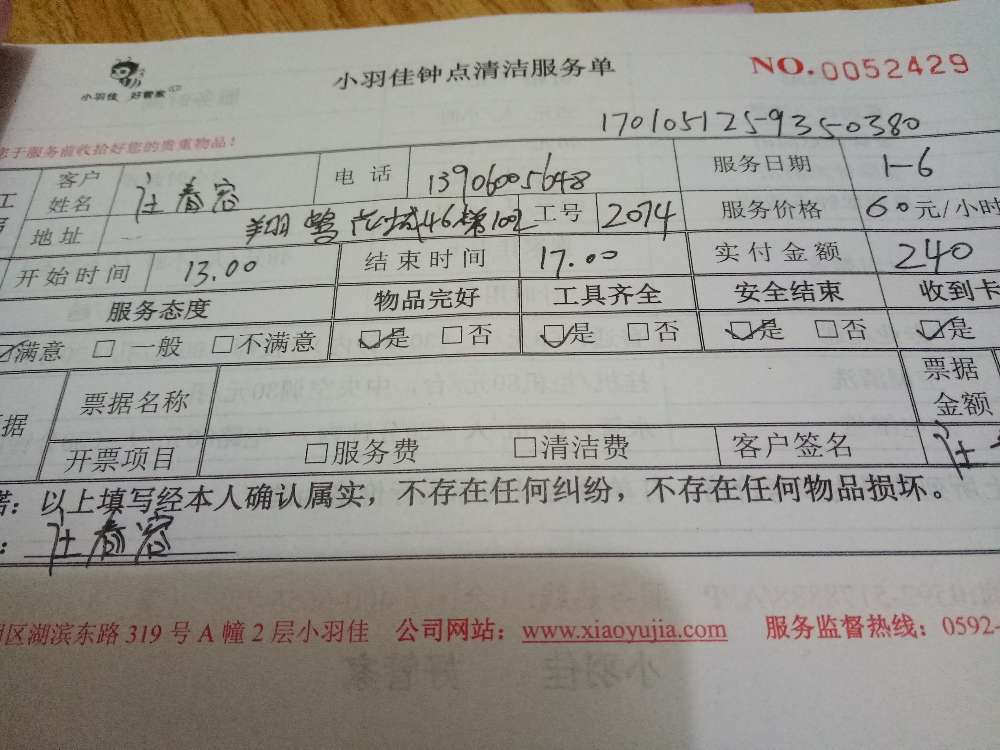 小羽佳钟点清洁服务单 NO.0052429
小羽佳 好管家
1701051259350380
您于服务前收拾好您的贵重物品！
客户姓名 汪春容 电话 13906005648 服务日期 1-6
地址 翔鹭花城46梯102 工号 2074 服务价格 60元/小时
开始时间 13.00 结束时间 17.00 实付金额 240
服务态度 物品完好 工具齐全 安全结束 收到卡
☑满意 □一般 □不满意 ☑是 □否 ☑是 □否 ☑是 □否 ☑是
据 票据名称 票据金额
开票项目 □服务费 □清洁费 客户签名 汪
诺：以上填写经本人确认属实，不存在任何纠纷，不存在任何物品损坏。
：汪春容
明区湖滨东路 319 号 A 幢 2 层小羽佳 公司网站：www.xiaoyujia.com 服务监督热线：0592-